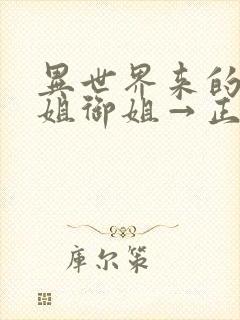 異世界来的
姐御姐→正
库尔策